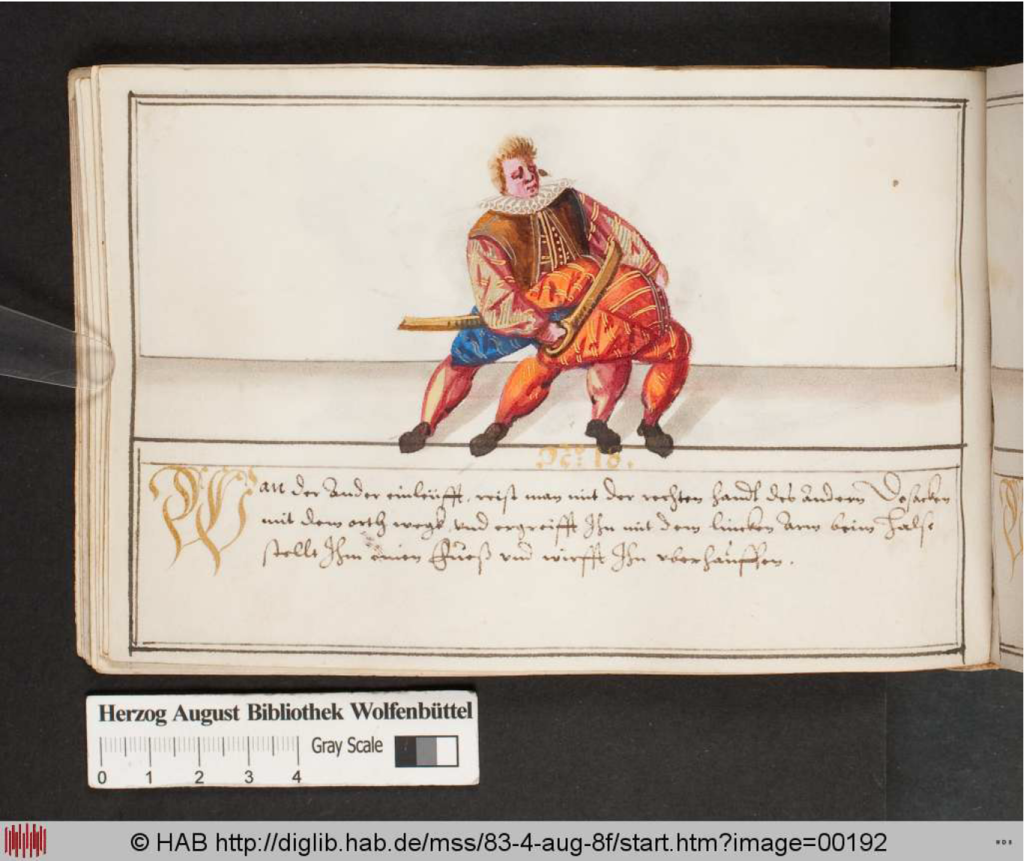 No: 18.
Wan der Ander einleüfft, reist man mit der rechten handt des andern Dosacken
mit dem orth wegk, vnd ergreifft Ihn mit dem lincken Arm beim halse
stellt Ihm einen Fueß vnd wirfft Ihn vberhauffen.
Herzog August Bibliothek Wolfenbüttel
Gray Scale
0 1 2 3 4
© HAB http://diglib.hab.de/mss/83-4-aug-8f/start.htm?image=00192